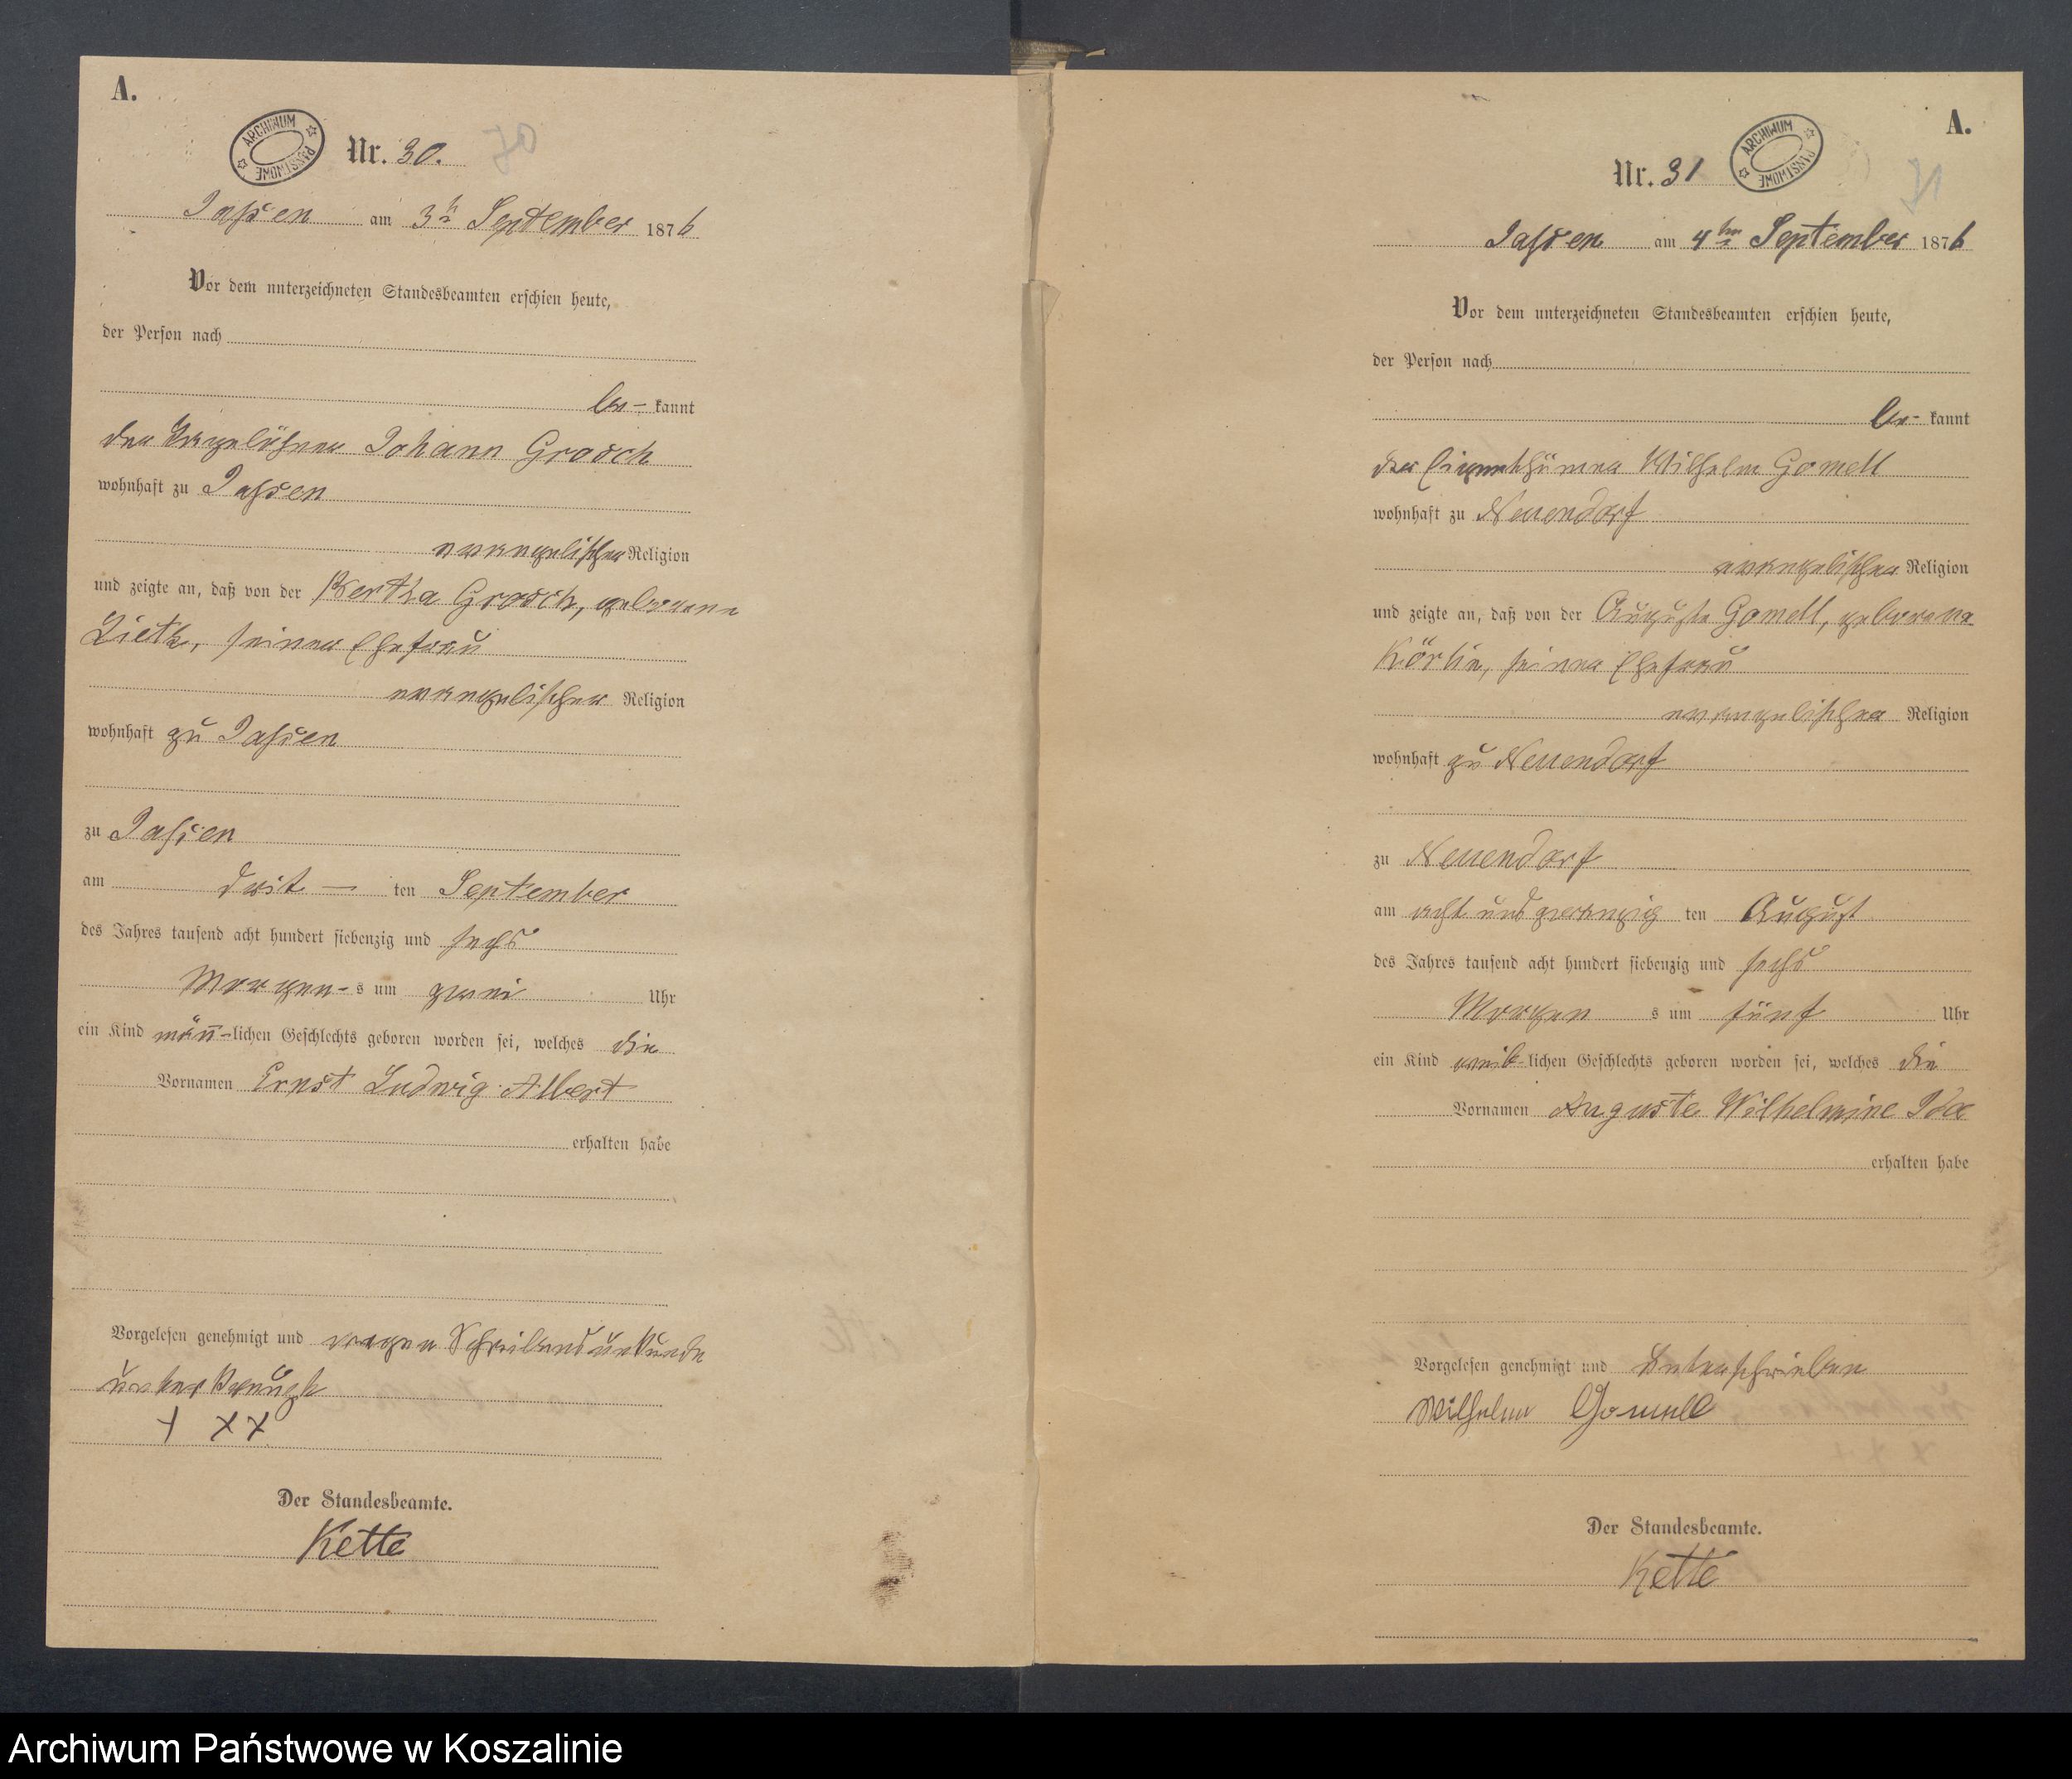 A.
ARCHIWUM PAŃSTWOWE
Nr. 30.
Jassen am 3t September 1876
Vor dem unterzeichneten Standesbeamten erschien heute,
der Person nach
be- kannt
der Tagelöhner Johann Grosch
wohnhaft zu Jassen
evangelischer Religion
und zeigte an, daß von der Bertha Grosch, geborene
Zietk, seiner Ehefrau
evangelischer Religion
wohnhaft zu Jassen
zu Jassen
am drit- ten September
des Jahres tausend acht hundert siebenzig und sechs
Morgen- s um zwei Uhr
ein Kind männ-lichen Geschlechts geboren worden sei, welches die
Vornamen Ernst Ludwig Albert
erhalten habe
Vorgelesen genehmigt und wegen Schreibensunkunde
unterkreuzt
+ ++
Der Standesbeamte.
Kette
A.
Nr. 31
ARCHIWUM PAŃSTWOWE
31
Jassen am 4ten September 1876
Vor dem unterzeichneten Standesbeamten erschien heute,
der Person nach
be- kannt
der Eigenthümer Wilhelm Gomell
wohnhaft zu Neuendorf
evangelischer Religion
und zeigte an, daß von der Auguste Gomell, geborene
Körlin, seiner Ehefrau
evangelischer Religion
wohnhaft zu Neuendorf
zu Neuendorf
am acht und zwanzig ten August
des Jahres tausend acht hundert siebenzig und sechs
Morgen s um fünf Uhr
ein Kind weib-lichen Geschlechts geboren worden sei, welches die
Vornamen Auguste Wilhelmine Ida
erhalten habe
Vorgelesen genehmigt und unterschrieben
Wilhelm Gomell
Der Standesbeamte.
Kette
Archiwum Państwowe w Koszalinie